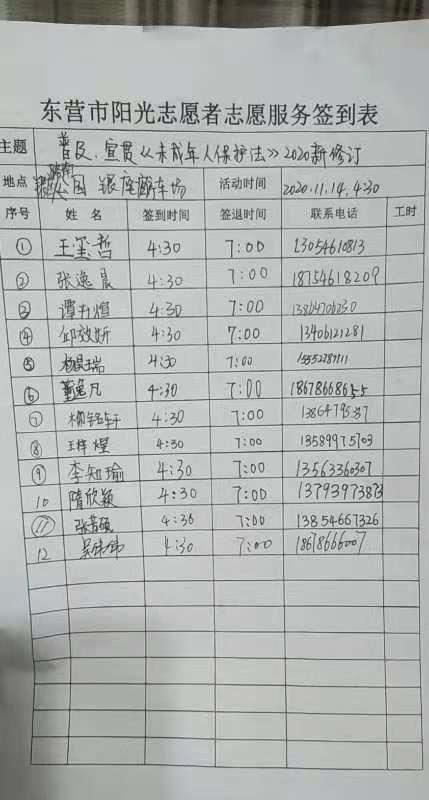 东营市阳光志愿者志愿服务签到表
主题 普及、宣贯《未成年人保护法》2020新修订
地点 公园 银座停车场 活动时间 2020.11.14.4:30
序号 姓名 签到时间 签退时间 联系电话 工时
① 王玺哲 4:30 7:00 13054610813
② 张逸晨 4:30 7:00 18754618209
③ 谭升煊 4:30 7:00
④ 邱效妍 4:30 7:00 13406121281
⑤ 4:30 7:00
⑥ 董逸凡 4:30 7:00 18678668655
⑦ 4:30 7:00
⑧ 4:30 7:00 13589975703
⑨ 李知瑜 4:30 7:00 13563360307
10 隋欣颖 4:30 7:00 13793973873
⑪ 4:30 7:00 13854667326
12 4:30 7:00 18678666007